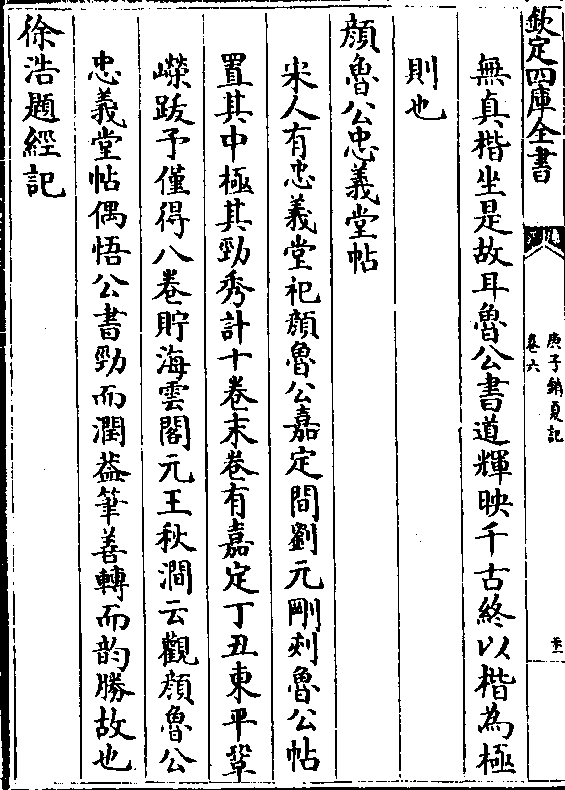 欽定四庫全書
庚子銷夏記
卷六
無真楷坐是故耳魯公書道輝映千古終以楷為極
則也
顔魯公忠義堂帖
宋人有忠義堂祀顔魯公嘉定間劉元剛刻魯公帖
置其中極其勁秀計十卷末卷有嘉定丁丑東平鞏
嶸跋予僅得八卷貯海雲閣元王秋澗云觀顔魯公
忠義堂帖偶悟公書勁而潤葢筆善轉而韵勝故也
徐浩題經記